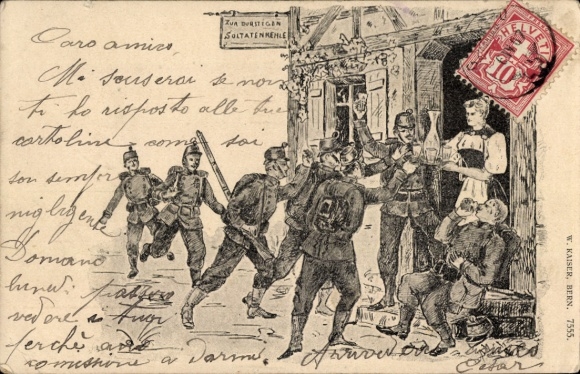 ZUR DURSTIGEN
SOLTATENKEHLE
HELVETIA
10
Caro amico,
Mi scuserai se non
ti ho risposto alle tue
cartoline come sai
son sempre
negligente
Domano
lunedi
vedere
perchè
comissione a darmi. Arrivederci
Cesar
W. KAISER, BERN. 7555.